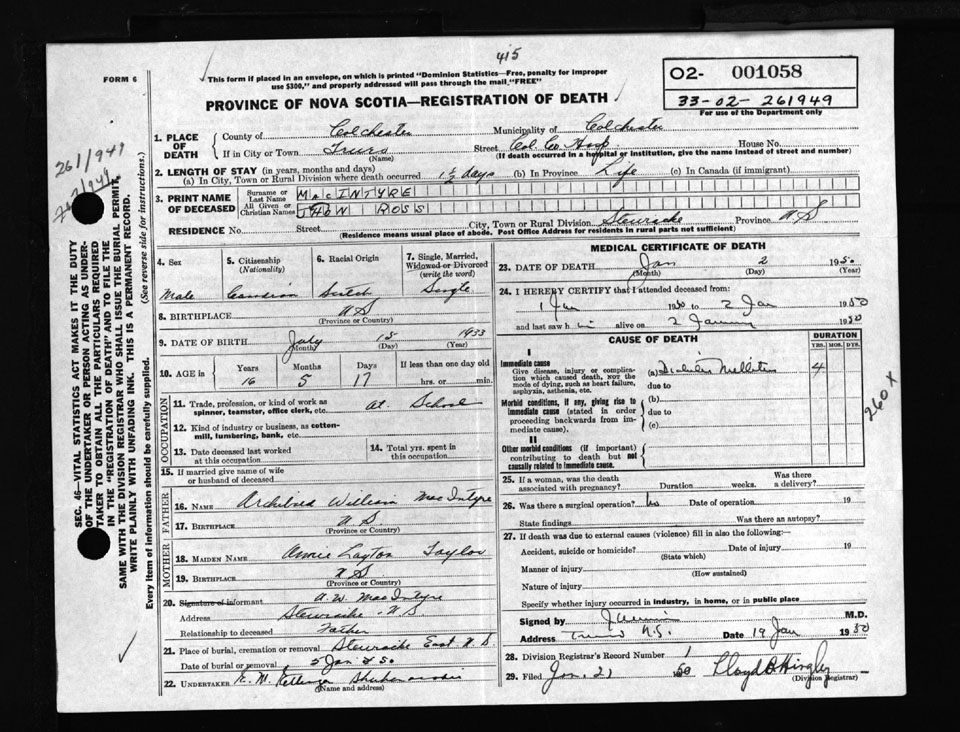 415
FORM 6
This form if placed in an envelope, on which is printed "Dominion Statistics—Free, penalty for improper
use $300," and properly addressed will pass through the mail "FREE"
02- 001058
33-02-261949
For use of the Department only
PROVINCE OF NOVA SCOTIA—REGISTRATION OF DEATH
261/949
SEC. 46—VITAL STATISTICS ACT MAKES IT THE DUTY
OF THE UNDERTAKER OR PERSON ACTING AS UNDER-
TAKER TO OBTAIN ALL THE PARTICULARS REQUIRED
IN THE "REGISTRATION OF DEATH" AND TO FILE THE
SAME WITH THE DIVISION REGISTRAR WHO SHALL ISSUE THE BURIAL PERMIT.
WRITE PLAINLY WITH UNFADING INK. THIS IS A PERMANENT RECORD.
Every item of information should be carefully supplied. (See reverse side for instructions.)
1. PLACE OF DEATH
County of Colchester Municipality of Colchester
If in City or Town Truro (Name) Street Col. Co. Hosp House No.
(If death occurred in a hospital or institution, give the name instead of street and number)
2. LENGTH OF STAY (in years, months and days)
(a) In City, Town or Rural Division where death occurred 1½ days (b) In Province Life (c) In Canada (if immigrant)
3. PRINT NAME OF DECEASED
Surname or Last Name MacINTYRE
All Given or Christian Names JHON ROSS
RESIDENCE No. Street City, Town or Rural Division Stewiacke Province N S
(Residence means usual place of abode. Post Office Address for residents in rural parts not sufficient)
4. Sex
Male
5. Citizenship (Nationality)
Canadian
6. Racial Origin
Scotch
7. Single, Married, Widowed or Divorced (write the word)
Single
8. BIRTHPLACE N S
(Province or Country)
9. DATE OF BIRTH July 15 1933
(Month) (Day) (Year)
10. AGE in
Years Months Days If less than one day old
16 5 17 hrs. or min.
OCCUPATION
11. Trade, profession, or kind of work as
spinner, teamster, office clerk, etc. at School
12. Kind of industry or business, as cotton-
mill, lumbering, bank, etc.
13. Date deceased last worked
at this occupation
14. Total yrs. spent in
this occupation.
15. If married give name of wife
or husband of deceased
FATHER
16. NAME Archibald William MacIntyre
17. BIRTHPLACE N. S.
(Province or Country)
MOTHER
18. MAIDEN NAME Annie Layton Taylor
19. BIRTHPLACE N S
(Province or Country)
20. Signature of informant A. W. MacIntyre
Address Stewiacke, N. S
Relationship to deceased Father
21. Place of burial, cremation or removal Stewiacke East N S.
Date of burial or removal 5 Jan 50
22. UNDERTAKER
(Name and address)
MEDICAL CERTIFICATE OF DEATH
23. DATE OF DEATH Jan 2 1950
(Month) (Day) (Year)
24. I HEREBY CERTIFY that I attended deceased from:
1 Jan 1950 to 2 Jan 1950
and last saw him alive on 2 January 1950
CAUSE OF DEATH
DURATION
YRS. MOS. DYS.
I
Immediate cause
Give disease, injury or complica-
tion which caused death, not the
mode of dying, such as heart failure,
asphyxia, asthenia, etc.
(a) Diabetes Mellitus 4
due to
Morbid conditions, if any, giving rise to
immediate cause (stated in order
proceeding backwards from im-
mediate cause).
(b)
due to
(c)
II
Other morbid conditions (if important)
contributing to death but not
causally related to immediate cause.
260 X
25. If a woman, was the death
associated with pregnancy? Duration weeks. Was there
a delivery?
26. Was there a surgical operation? No Date of operation 19
State findings Was there an autopsy?
27. If death was due to external causes (violence) fill in also the following:—
Accident, suicide or homicide? Date of injury 19
(State which)
Manner of injury
(How sustained)
Nature of injury
Specify whether injury occurred in industry, in home, or in public place
Signed by M.D.
Address Truro N.S. Date 19 Jan 1950
28. Division Registrar's Record Number 1
29. Filed Jan. 21 1950 Lloyd B Hingley
(Division Registrar)